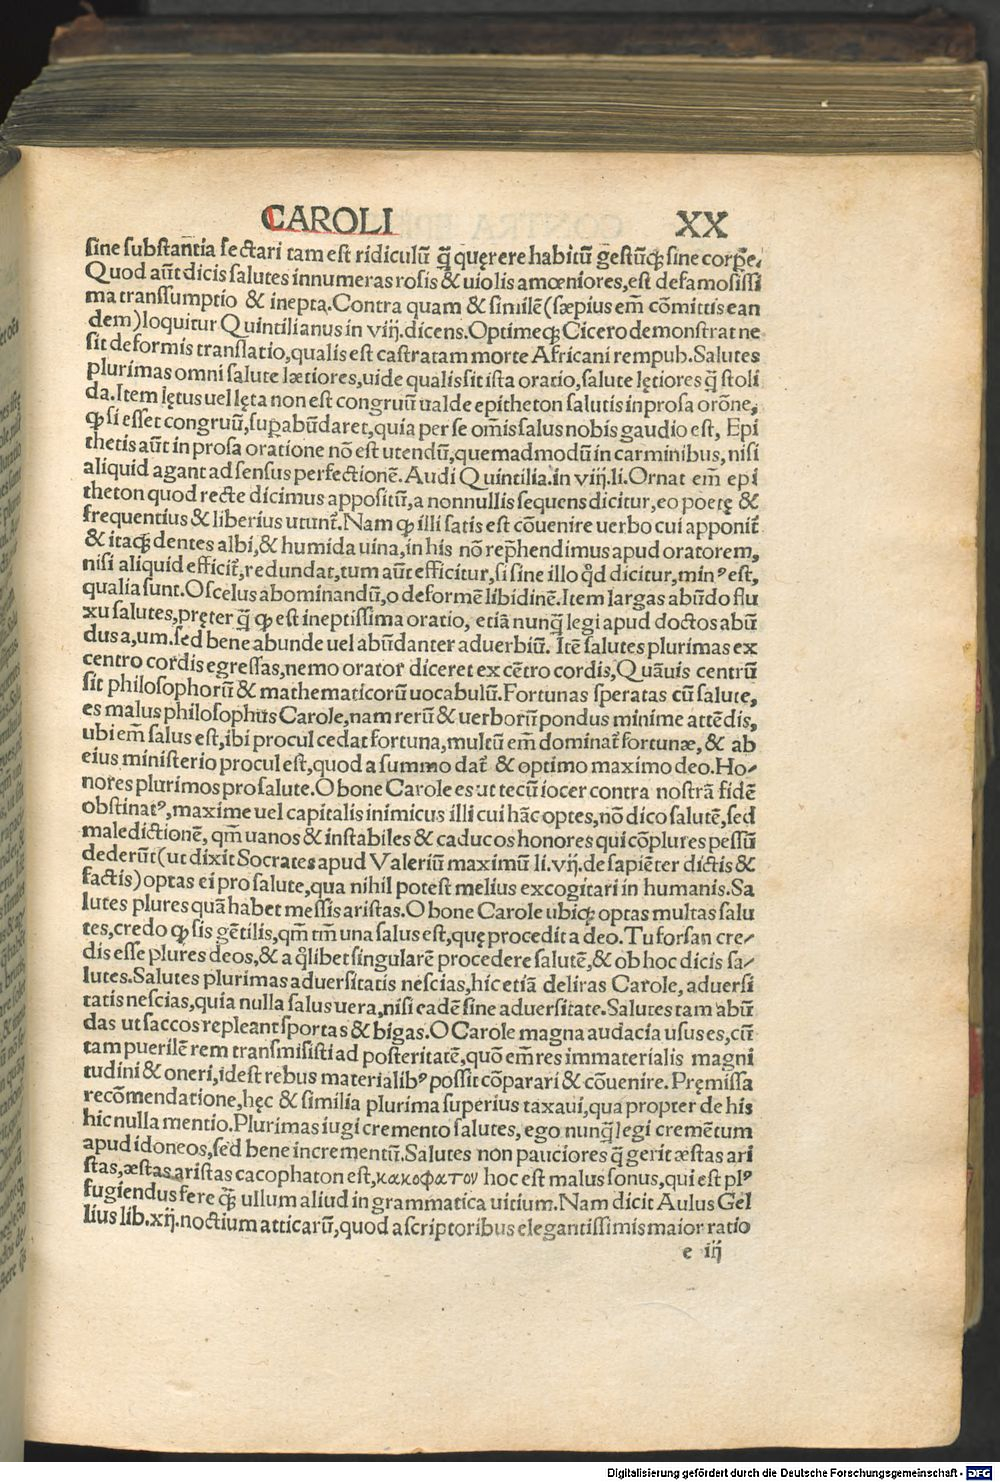 CAROLI XX
sine substantia sectari tam est ridiculū q̄ quęrere habitū gestūq; sine corpe.
Quod aūt dicis salutes innumeras rosis & uiolis amœniores, est defamosissi
ma transsumptio & inepta. Contra quam & similē (sæpius em̄ cōmittis ean
dem) loquitur Quintilianus in viij. dicens. Optimeq; Cicero demonstrat ne
sit deformis translatio, qualis est castratam morte Africani rempub. Salutes
plurimas omni salute lætiores, uide qualis sit ista oratio, salute lętiores q̄ stoli
da. Item lętus uel lęta non est congruū ualde epitheton salutis in prosa orōne,
qp si esset congruū, supabūdaret, quia per se om̄is salus nobis gaudio est, Epi
thetis aūt in prosa oratione nō est utendū, quemadmodū in carminibus, nisi
aliquid agant ad sensus perfectionē. Audi Quintilia. in viij. li. Ornat em̄ epi
theton quod recte dicimus appositū, a nonnullis sequens dicitur, eo poetę &
frequentius & liberius utunt̄. Nam qp illi satis est cōuenire uerbo cui apponit̄
& itaq; dentes albi, & humida uina, in his nō rep̄hendimus apud oratorem,
nisi aliquid efficit̄, redundat, tum aūt efficitur, si sine illo qd̄ dicitur, minꝰ est,
qualia sunt. O scelus abominandū, o deformē libidinē. Item largas abūdo flu
xu salutes, pręter q̄ qp est ineptissima oratio, etiā nunq̄ legi apud doctos abū
dus a, um. sed bene abunde uel abūdanter aduerbiū. Itē salutes plurimas ex
centro cordis egressas, nemo orator diceret ex cētro cordis, Quāuis centrū
sit philosophorū & mathematicorū uocabulū. Fortunas speratas cū salute,
es malus philosophus Carole, nam rerū & uerborū pondus minime attēdis,
ubi em̄ salus est, ibi procul cedat fortuna, multū em̄ dominat̄ fortunæ, & ab
eius ministerio procul est, quod a summo dat̄ & optimo maximo deo. Ho-
nores plurimos pro salute. O bone Carole es ut tecū iocer contra nostrā fidē
obstinatꝰ, maxime uel capitalis inimicus illi cui hāc optes, nō dico salutē, sed
maledictionē, qm̄ uanos & instabiles & caducos honores qui cōplures pessū
dederūt (ut dixit Socrates apud Valeriū maximū li. vij. de sapiēter dictis &
factis) optas ei pro salute, qua nihil potest melius excogitari in humanis. Sa
lutes plures quā habet messis aristas. O bone Carole ubiq; optas multas salu
tes, credo qp sis gētilis, qm̄ tm̄ una salus est, quę procedit a deo. Tu forsan cre-
dis esse plures deos, & a q̄libet singularē procedere salutē, & ob hoc dicis sa-
lutes. Salutes plurimas aduersitatis nescias, hic etiā deliras Carole, aduersi
tatis nescias, quia nulla salus uera, nisi eadē sine aduersitate. Salutes tam abū
das ut saccos repleant sportas & bigas. O Carole magna audacia usus es, cū
tam puerilē rem transmisisti ad posteritatē, quō em̄ res immaterialis magni
tudini & oneri, id est rebus materialibꝰ possit cōparari & cōuenire. Pręmissa
recōmendatione, hęc & similia plurima superius taxaui, qua propter de his
hic nulla mentio. Plurimas iugi cremento salutes, ego nunq̄ legi cremētum
apud idoneos, sed bene incrementū. Salutes non pauciores q̄ gerit æstas ari
stas, æstas aristas cacophaton est, κακοφατον hoc est malus sonus, qui est plꝰ
fugiendus fere q̄ ullum aliud in grammatica uitium. Nam dicit Aulus Gel
lius lib. xij. noctium atticarū, quod a scriptoribus elegantissimis maior ratio
e iij
Digitalisierung gefördert durch die Deutsche Forschungsgemeinschaft - DFG